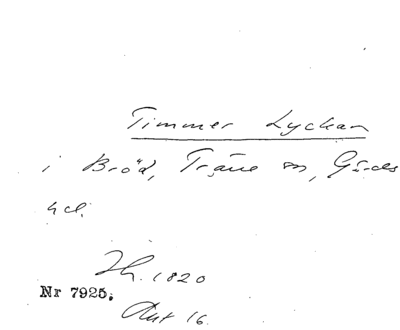 Timmer Lyckan
i Bröd, Träne sn, Gärds
hd.
Jh. 1820
Nr 7925.
Akt 16.